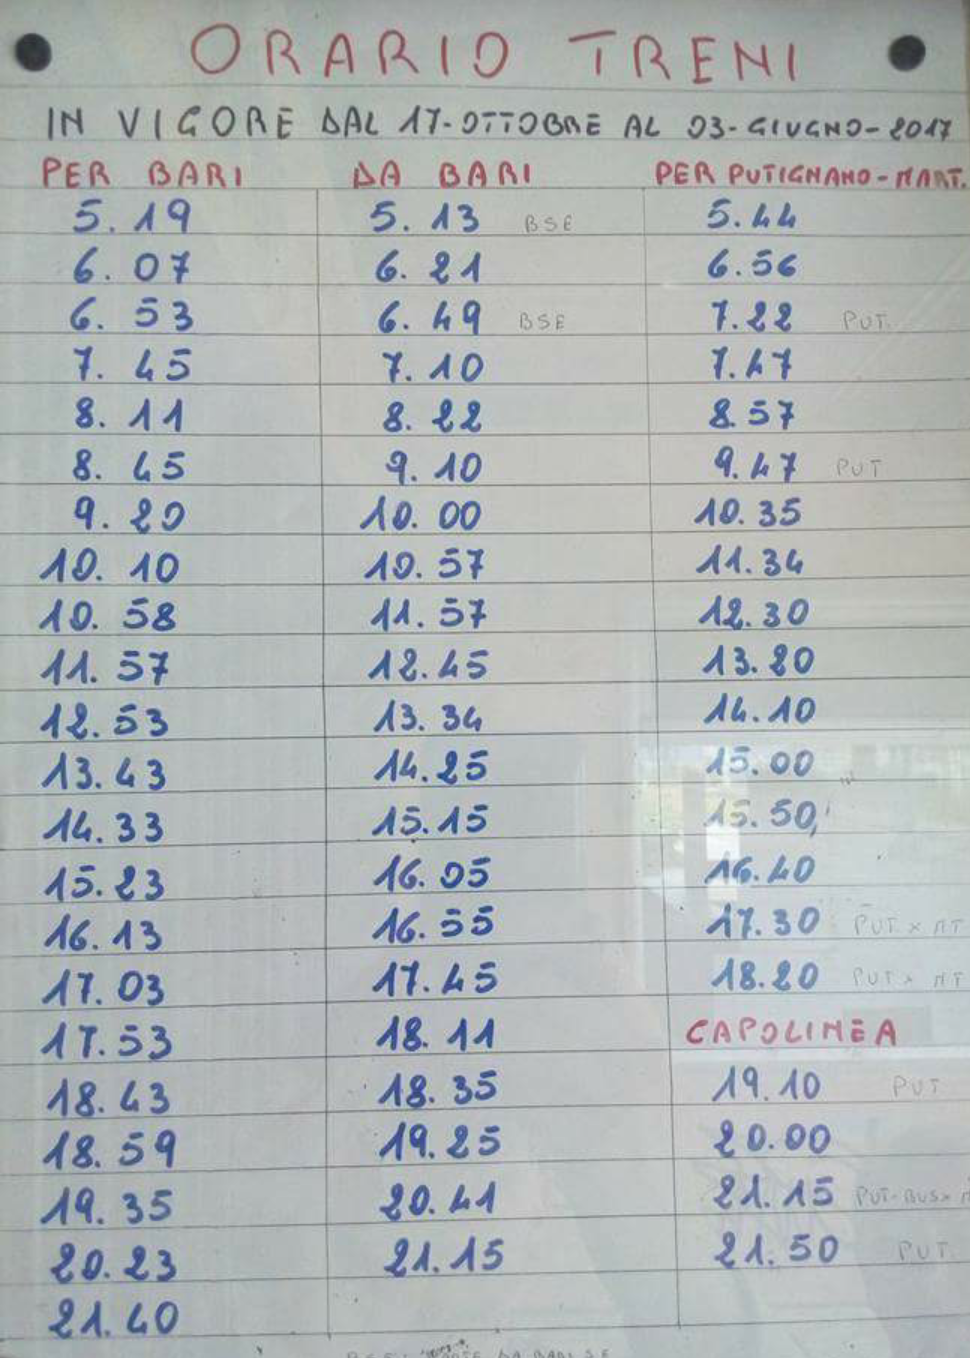 ORARIO TRENI
IN VIGORE DAL 17-OTTOBRE AL 03-GIUGNO-2017
PER BARI DA BARI PER PUTIGNANO-MART.
5.19 5.13 BSE 5.44
6.07 6.21 6.56
6.53 6.49 BSE 7.22 PUT.
7.45 7.10 7.47
8.11 8.22 8.57
8.45 9.10 9.47 PUT
9.20 10.00 10.35
10.10 10.57 11.34
10.58 11.57 12.30
11.57 12.45 13.20
12.53 13.34 14.10
13.43 14.25 15.00
14.33 15.15 15.50
15.23 16.05 16.40
16.13 16.55 17.30 PUT x MT
17.03 17.45 18.20 PUT x MT
17.53 18.11 CAPOLINEA
18.43 18.35 19.10 PUT
18.59 19.25 20.00
19.35 20.41 21.15 PUT-BUSx
20.23 21.15 21.50 PUT
21.40
DA BARI S.E